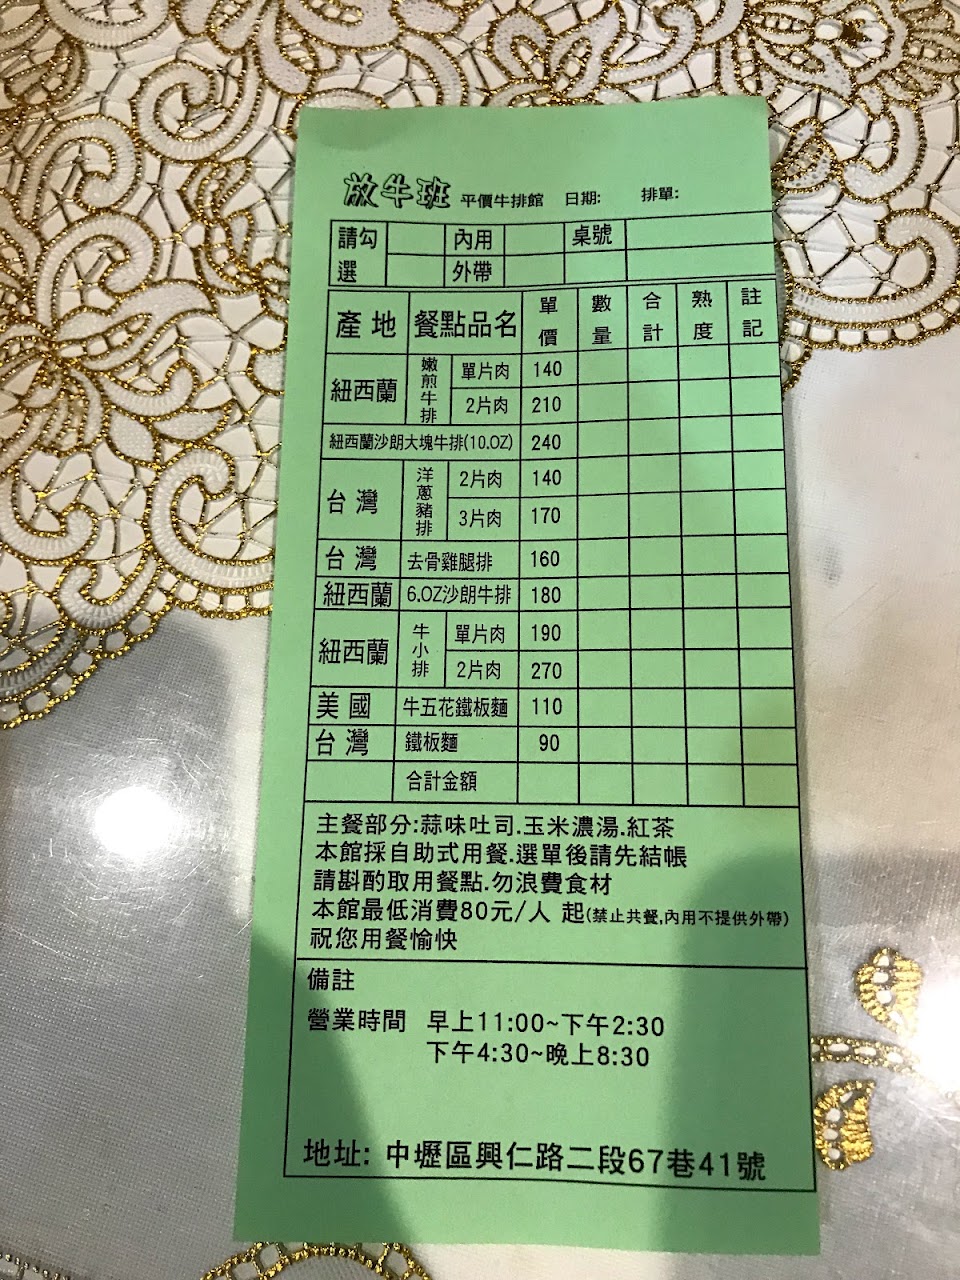 放牛班 平價牛排館 日期: 排單:
請勾選 內用 桌號
外帶
產地 餐點品名 單價 數量 合計 熟度 註記
紐西蘭 嫩煎牛排 單片肉 140
2片肉 210
紐西蘭沙朗大塊牛排(10.OZ) 240
台灣 洋蔥豬排 2片肉 140
3片肉 170
台灣 去骨雞腿排 160
紐西蘭 6.OZ沙朗牛排 180
紐西蘭 牛小排 單片肉 190
2片肉 270
美國 牛五花鐵板麵 110
台灣 鐵板麵 90
合計金額
主餐部分:蒜味吐司.玉米濃湯.紅茶
本館採自助式用餐.選單後請先結帳
請斟酌取用餐點.勿浪費食材
本館最低消費80元/人 起(禁止共餐,內用不提供外帶)
祝您用餐愉快
備註
營業時間 早上11:00~下午2:30
下午4:30~晚上8:30
地址: 中壢區興仁路二段67巷41號